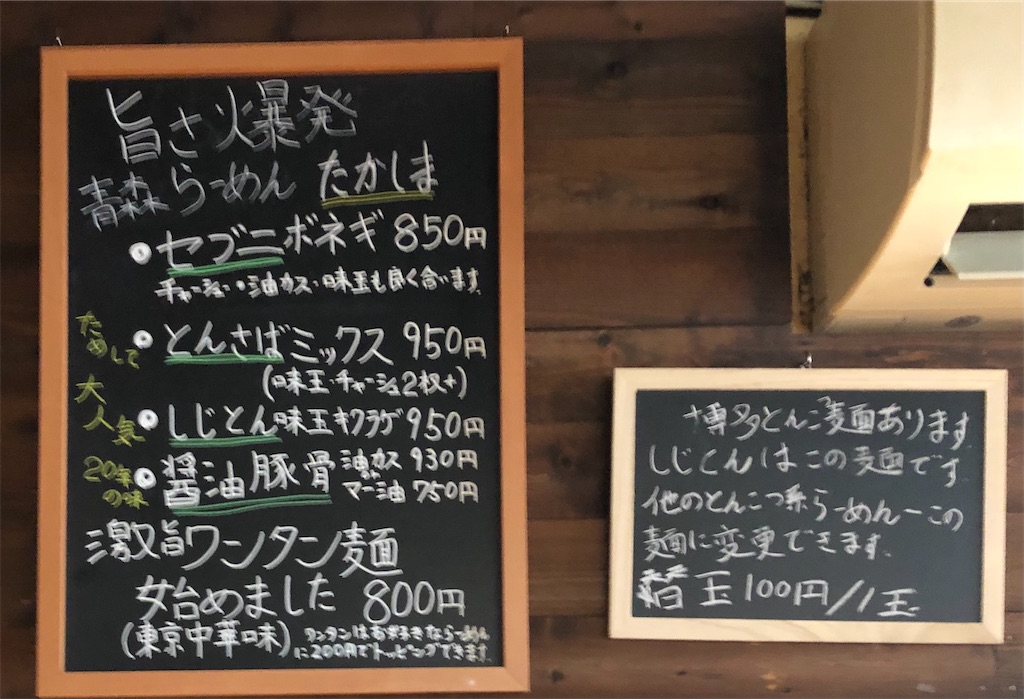 旨さ爆発
青森らーめん たかしま
セブニボネギ 850円
チャーシュー・油カス・味玉も良く合います。
ためして とんさばミックス 950円
(味玉・チャーシュー2枚+)
大人気 しじとん味玉キクラゲ 950円
20年の味 醤油豚骨 油カス 930円
マー油 750円
激旨ワンタン麺
始めました 800円
(東京中華味) ワンタンはお好きならーめん
に200円でトッピングできます。
博多とんこつ麺あります
しじとんはこの麺です
他のとんこつ系らーめんーこの
麺に変更できます。
替玉100円/1玉